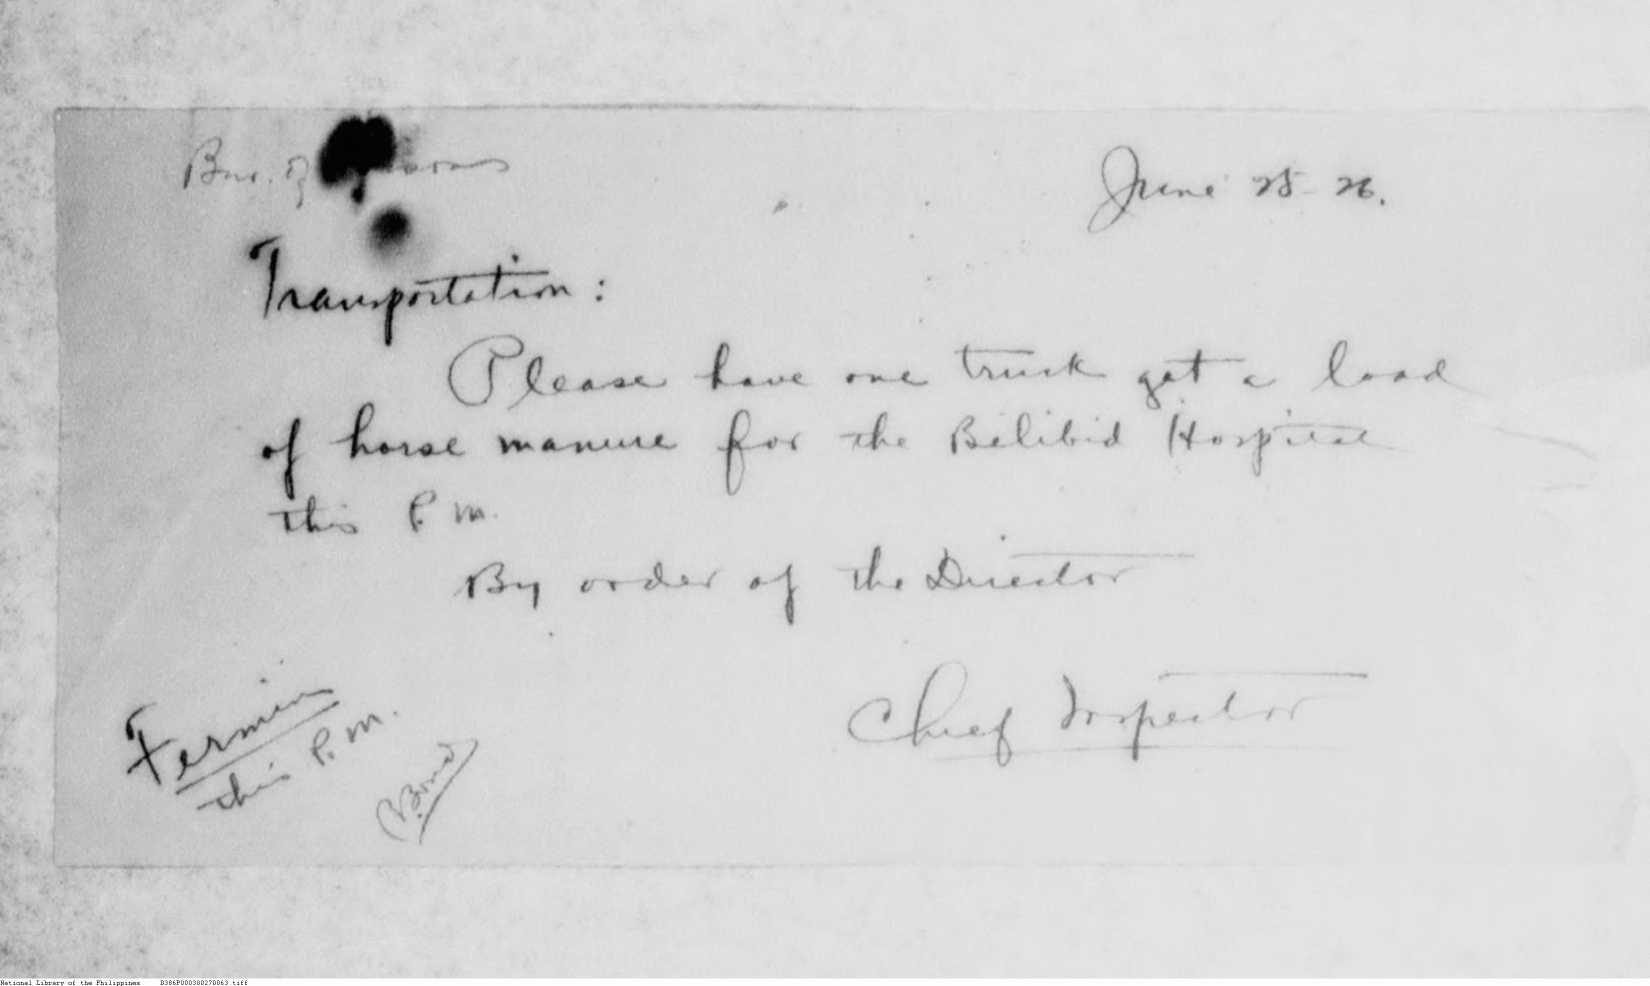 Bur. of
June 25-26.
Transportation:
Please have one truck get a load
of horse manure for the Bilibid Hospital
this P.M.
By order of the Director
Chief Inspector
Fermin
this P.M.
National Library of the Philippines D386P000300270063.tiff